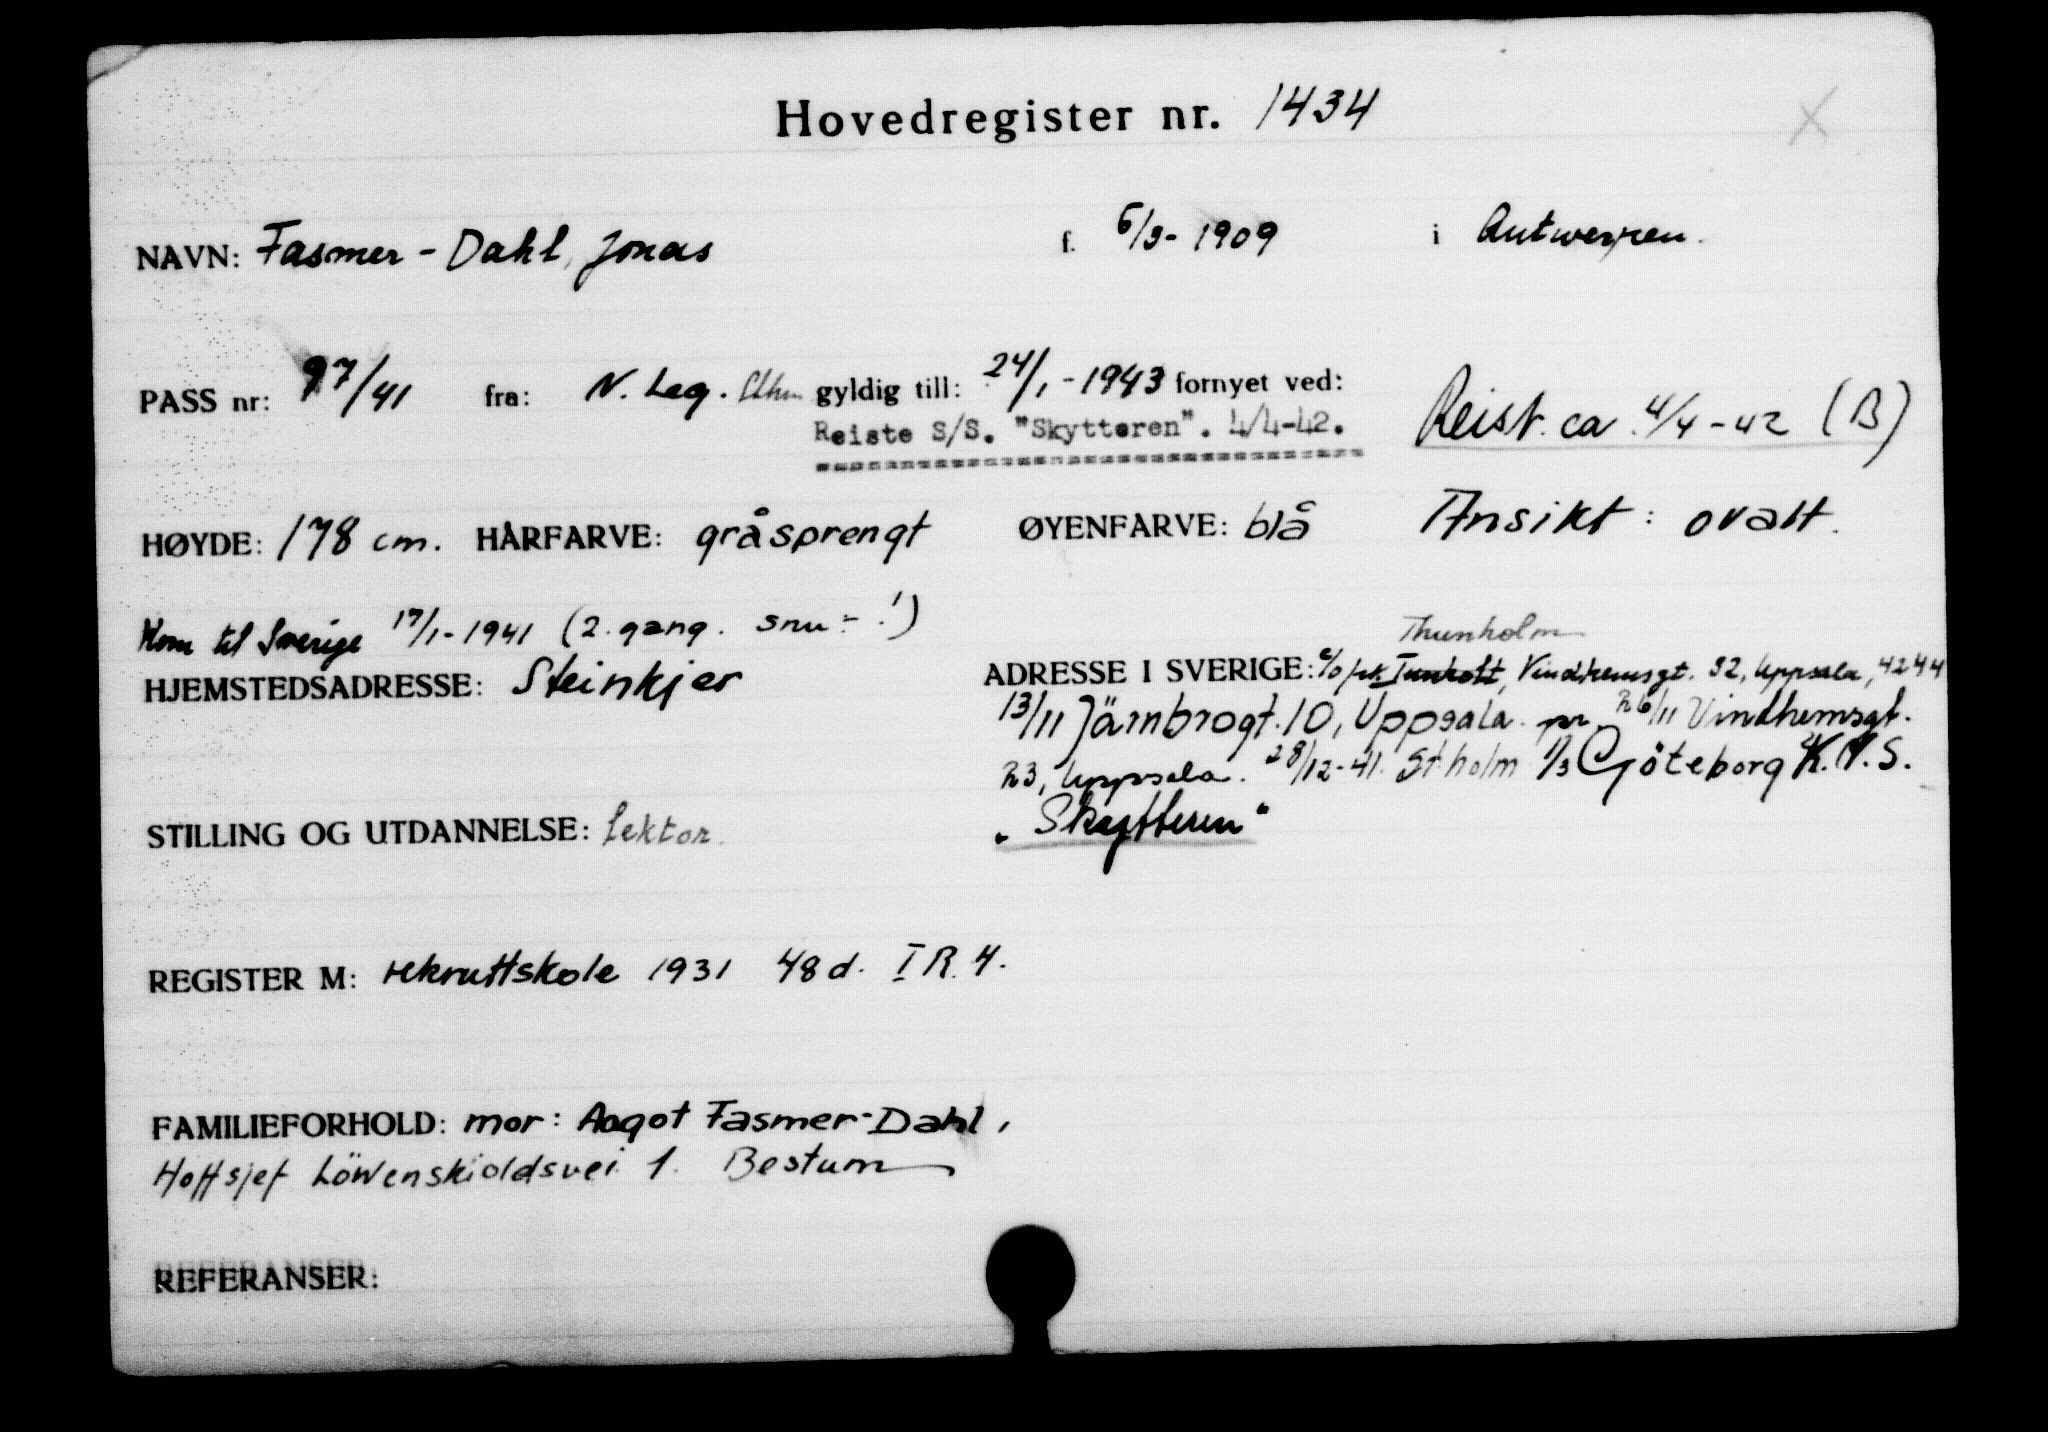 Hovedregister nr. 1434
NAVN: Fasmer-Dahl, Jonas f. 6/9-1909 i Antwerpen.
PASS nr: 97/41 fra: N. Leg. Sthm gyldig till: 24/1-1943 fornyet ved:
Reiste S/S. "Skytteren". 4/4-42. Reist ca. 4/4-42 (B)
HØYDE: 178 cm. HÅRFARVE: gråsprengt ØYENFARVE: blå Ansikt: ovalt.
Kom til Sverige 17/1-1941 (2. gang.
Thunholm
HJEMSTEDSADRESSE: Steinkjer ADRESSE I SVERIGE: c/o Vindhemsgt. 32, Uppsala, 4244
13/11 Järnbrogt. 10, Uppsala. pr. 26/11 Vindhemsgt.
23, Uppsala. 28/12-41. Stholm 1/3 Göteborg
STILLING OG UTDANNELSE: lektor. "Skytteren"
REGISTER M: rekruttskole 1931 48 d. I R. 4.
FAMILIEFORHOLD: mor: Aagot Fasmer-Dahl,
Hoffsjef Löwenskioldsvei 1. Bestum
REFERANSER: